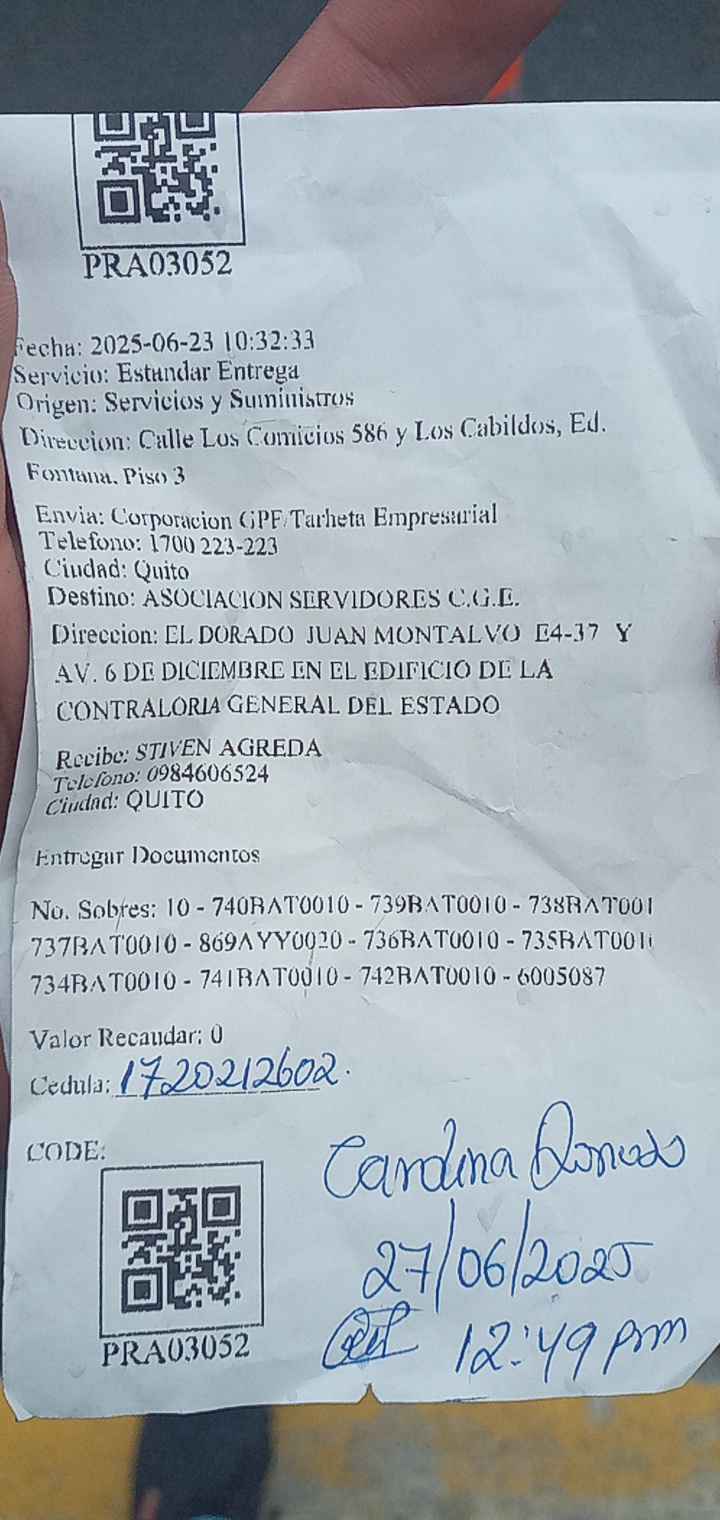 PRA03052
Fecha: 2025-06-23 10:32:33
Servicio: Estandar Entrega
Origen: Servicios y Suministros
Direccion: Calle Los Comicios 586 y Los Cabildos, Ed.
Fontana, Piso 3
Envia: Corporacion GPF/Tarheta Empresarial
Telefono: 1700 223-223
Ciudad: Quito
Destino: ASOCIACION SERVIDORES C.G.E.
Direccion: EL DORADO JUAN MONTALVO E4-37 Y
AV. 6 DE DICIEMBRE EN EL EDIFICIO DE LA
CONTRALORIA GENERAL DEL ESTADO
Recibe: STIVEN AGREDA
Telefono: 0984606524
Ciudad: QUITO
Entregar Documentos
No. Sobres: 10 - 740BAT0010 - 739BAT0010 - 738BAT001
737BAT0010 - 869AYY0020 - 736BAT0010 - 735BAT001
734BAT0010 - 741BAT0010 - 742BAT0010 - 6005087
Valor Recaudar: 0
Cedula: 1720212602.
CODE:
Carolina
27/06/2025
12:49 pm
PRA03052